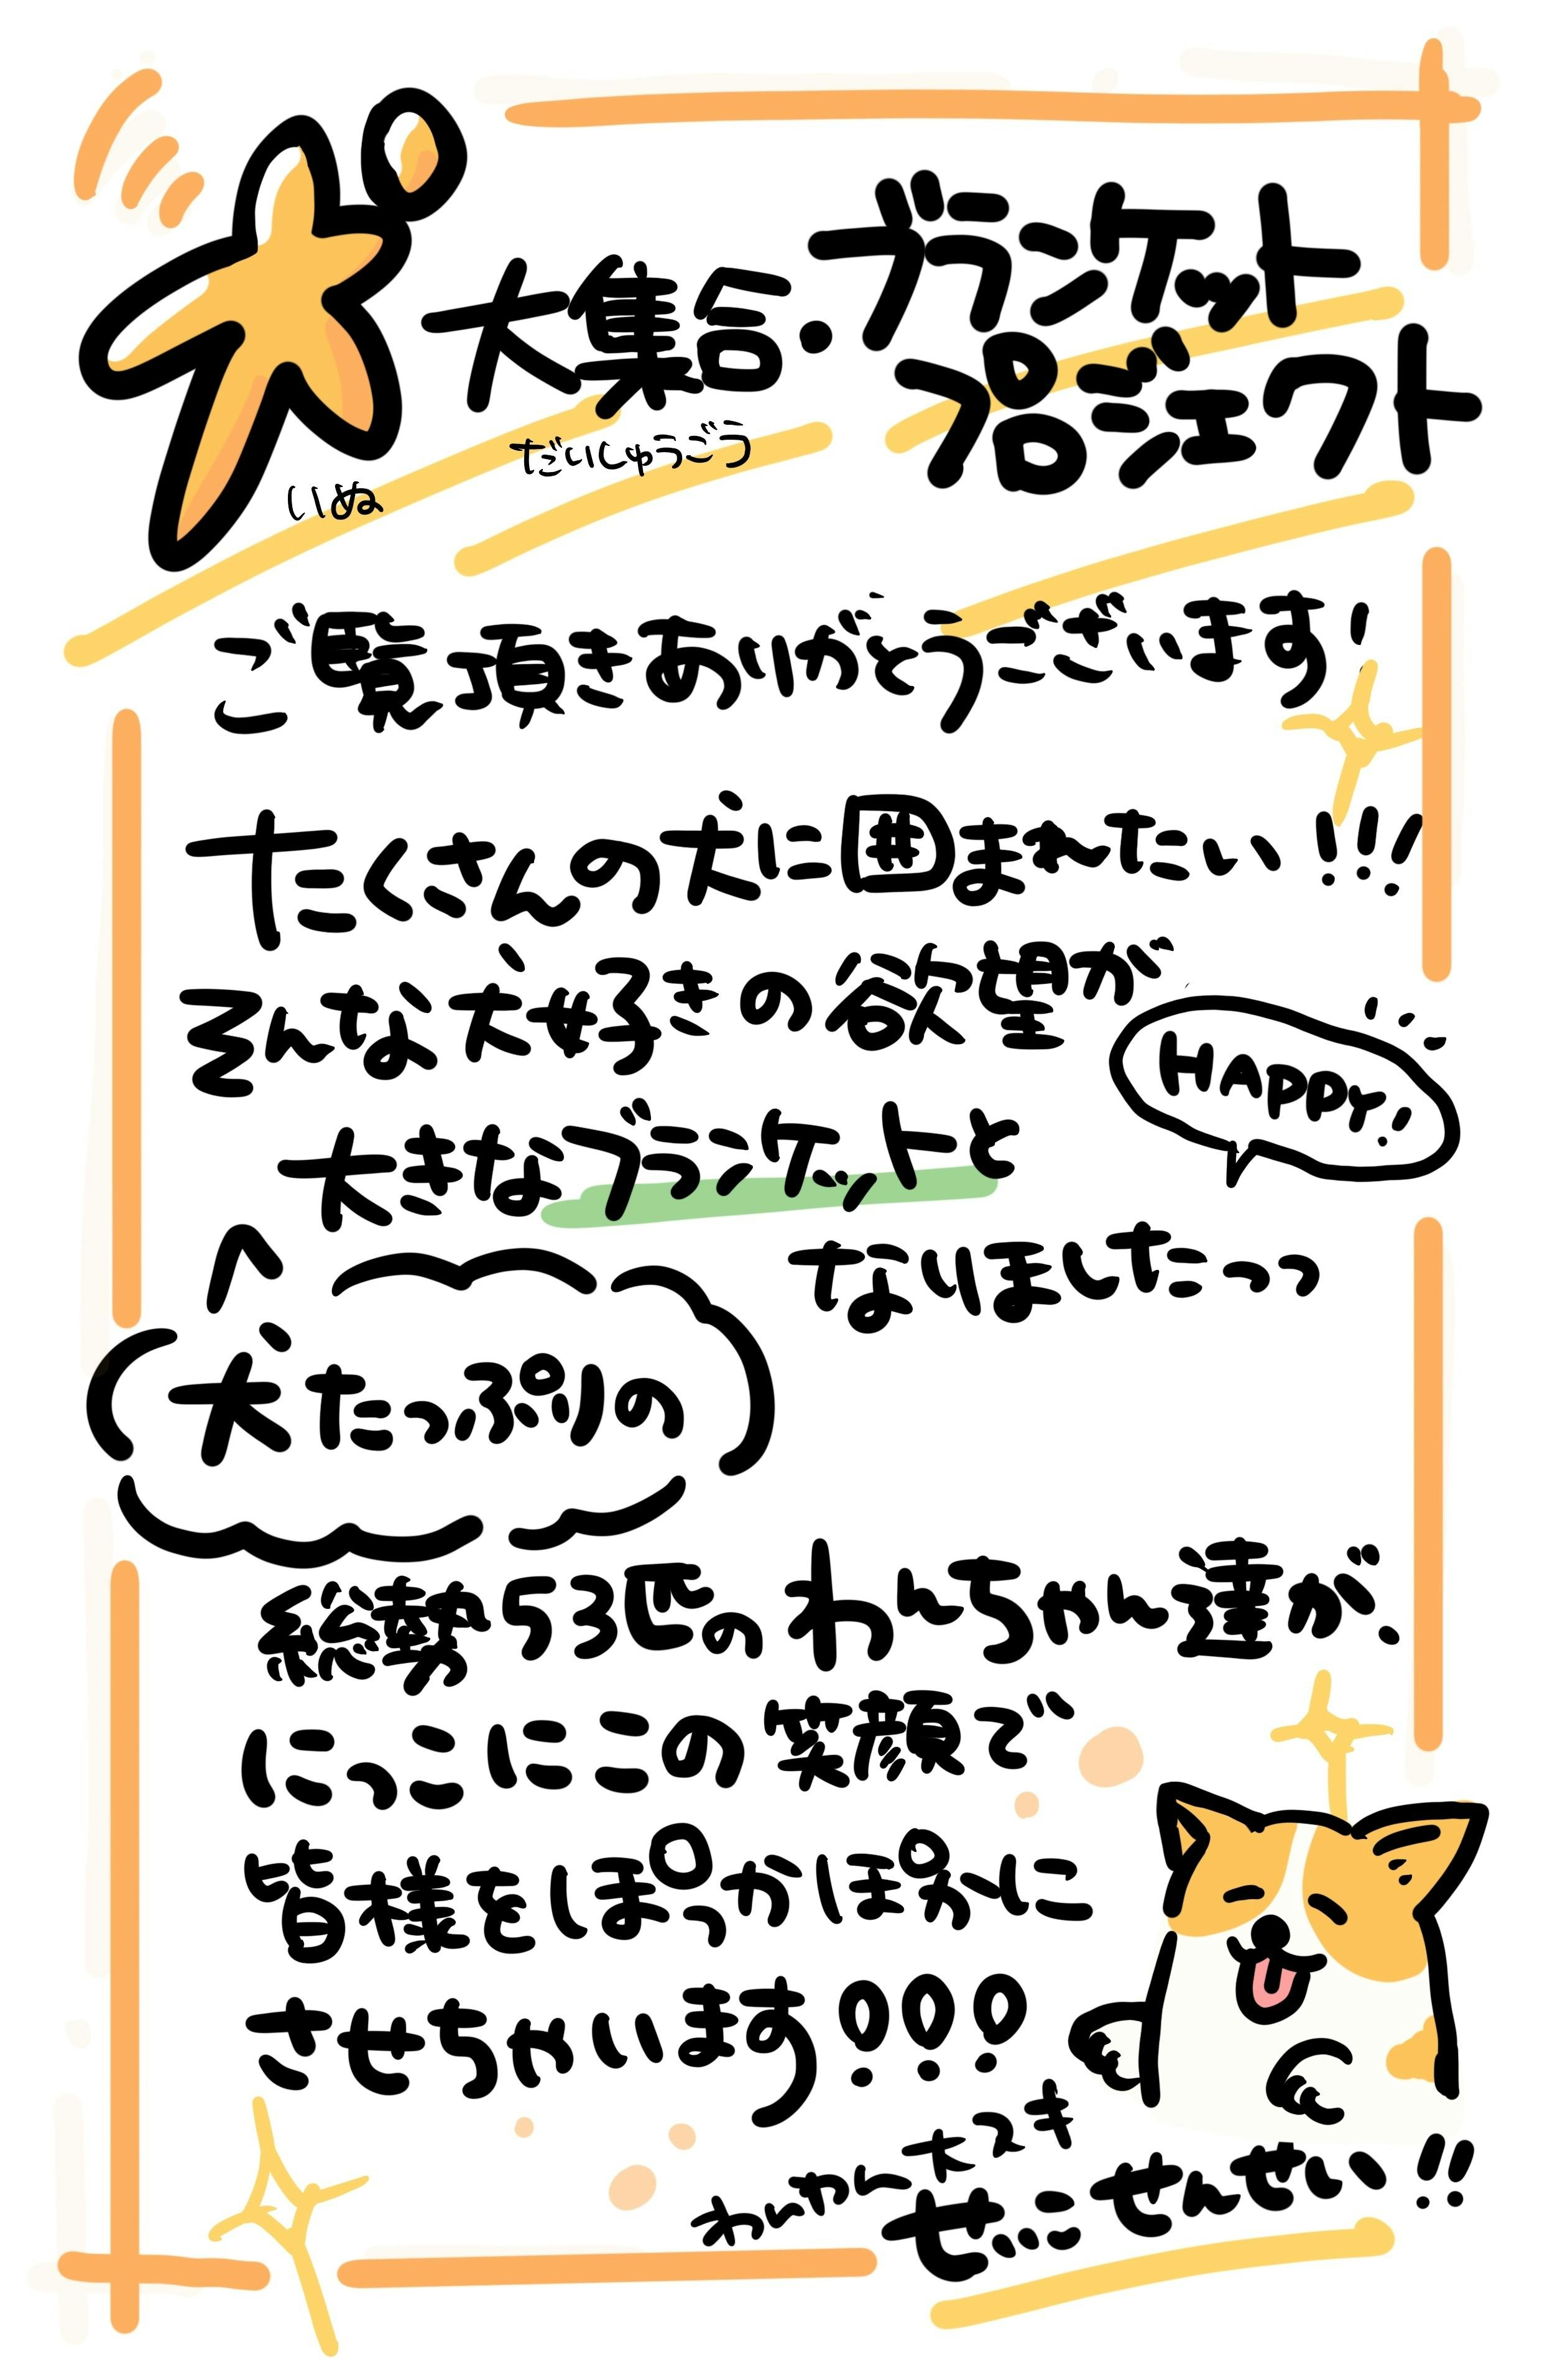 犬大集合.ブランケット
プロジェクト
いぬ だいしゅうごう
ご覧頂きありがとうございます!
たくさんの犬に囲まれたい!!!
そんな犬好きの欲望が
HAPPY!
大きなブランケットと
なりましたっっ
犬たっぷりの
総勢53匹のわんちゃん達が、
にっこにこの笑顔で
皆様をぽっかぽかに
させちゃいます!!!
わんちゃん大スキ
ぜにせんせい!!